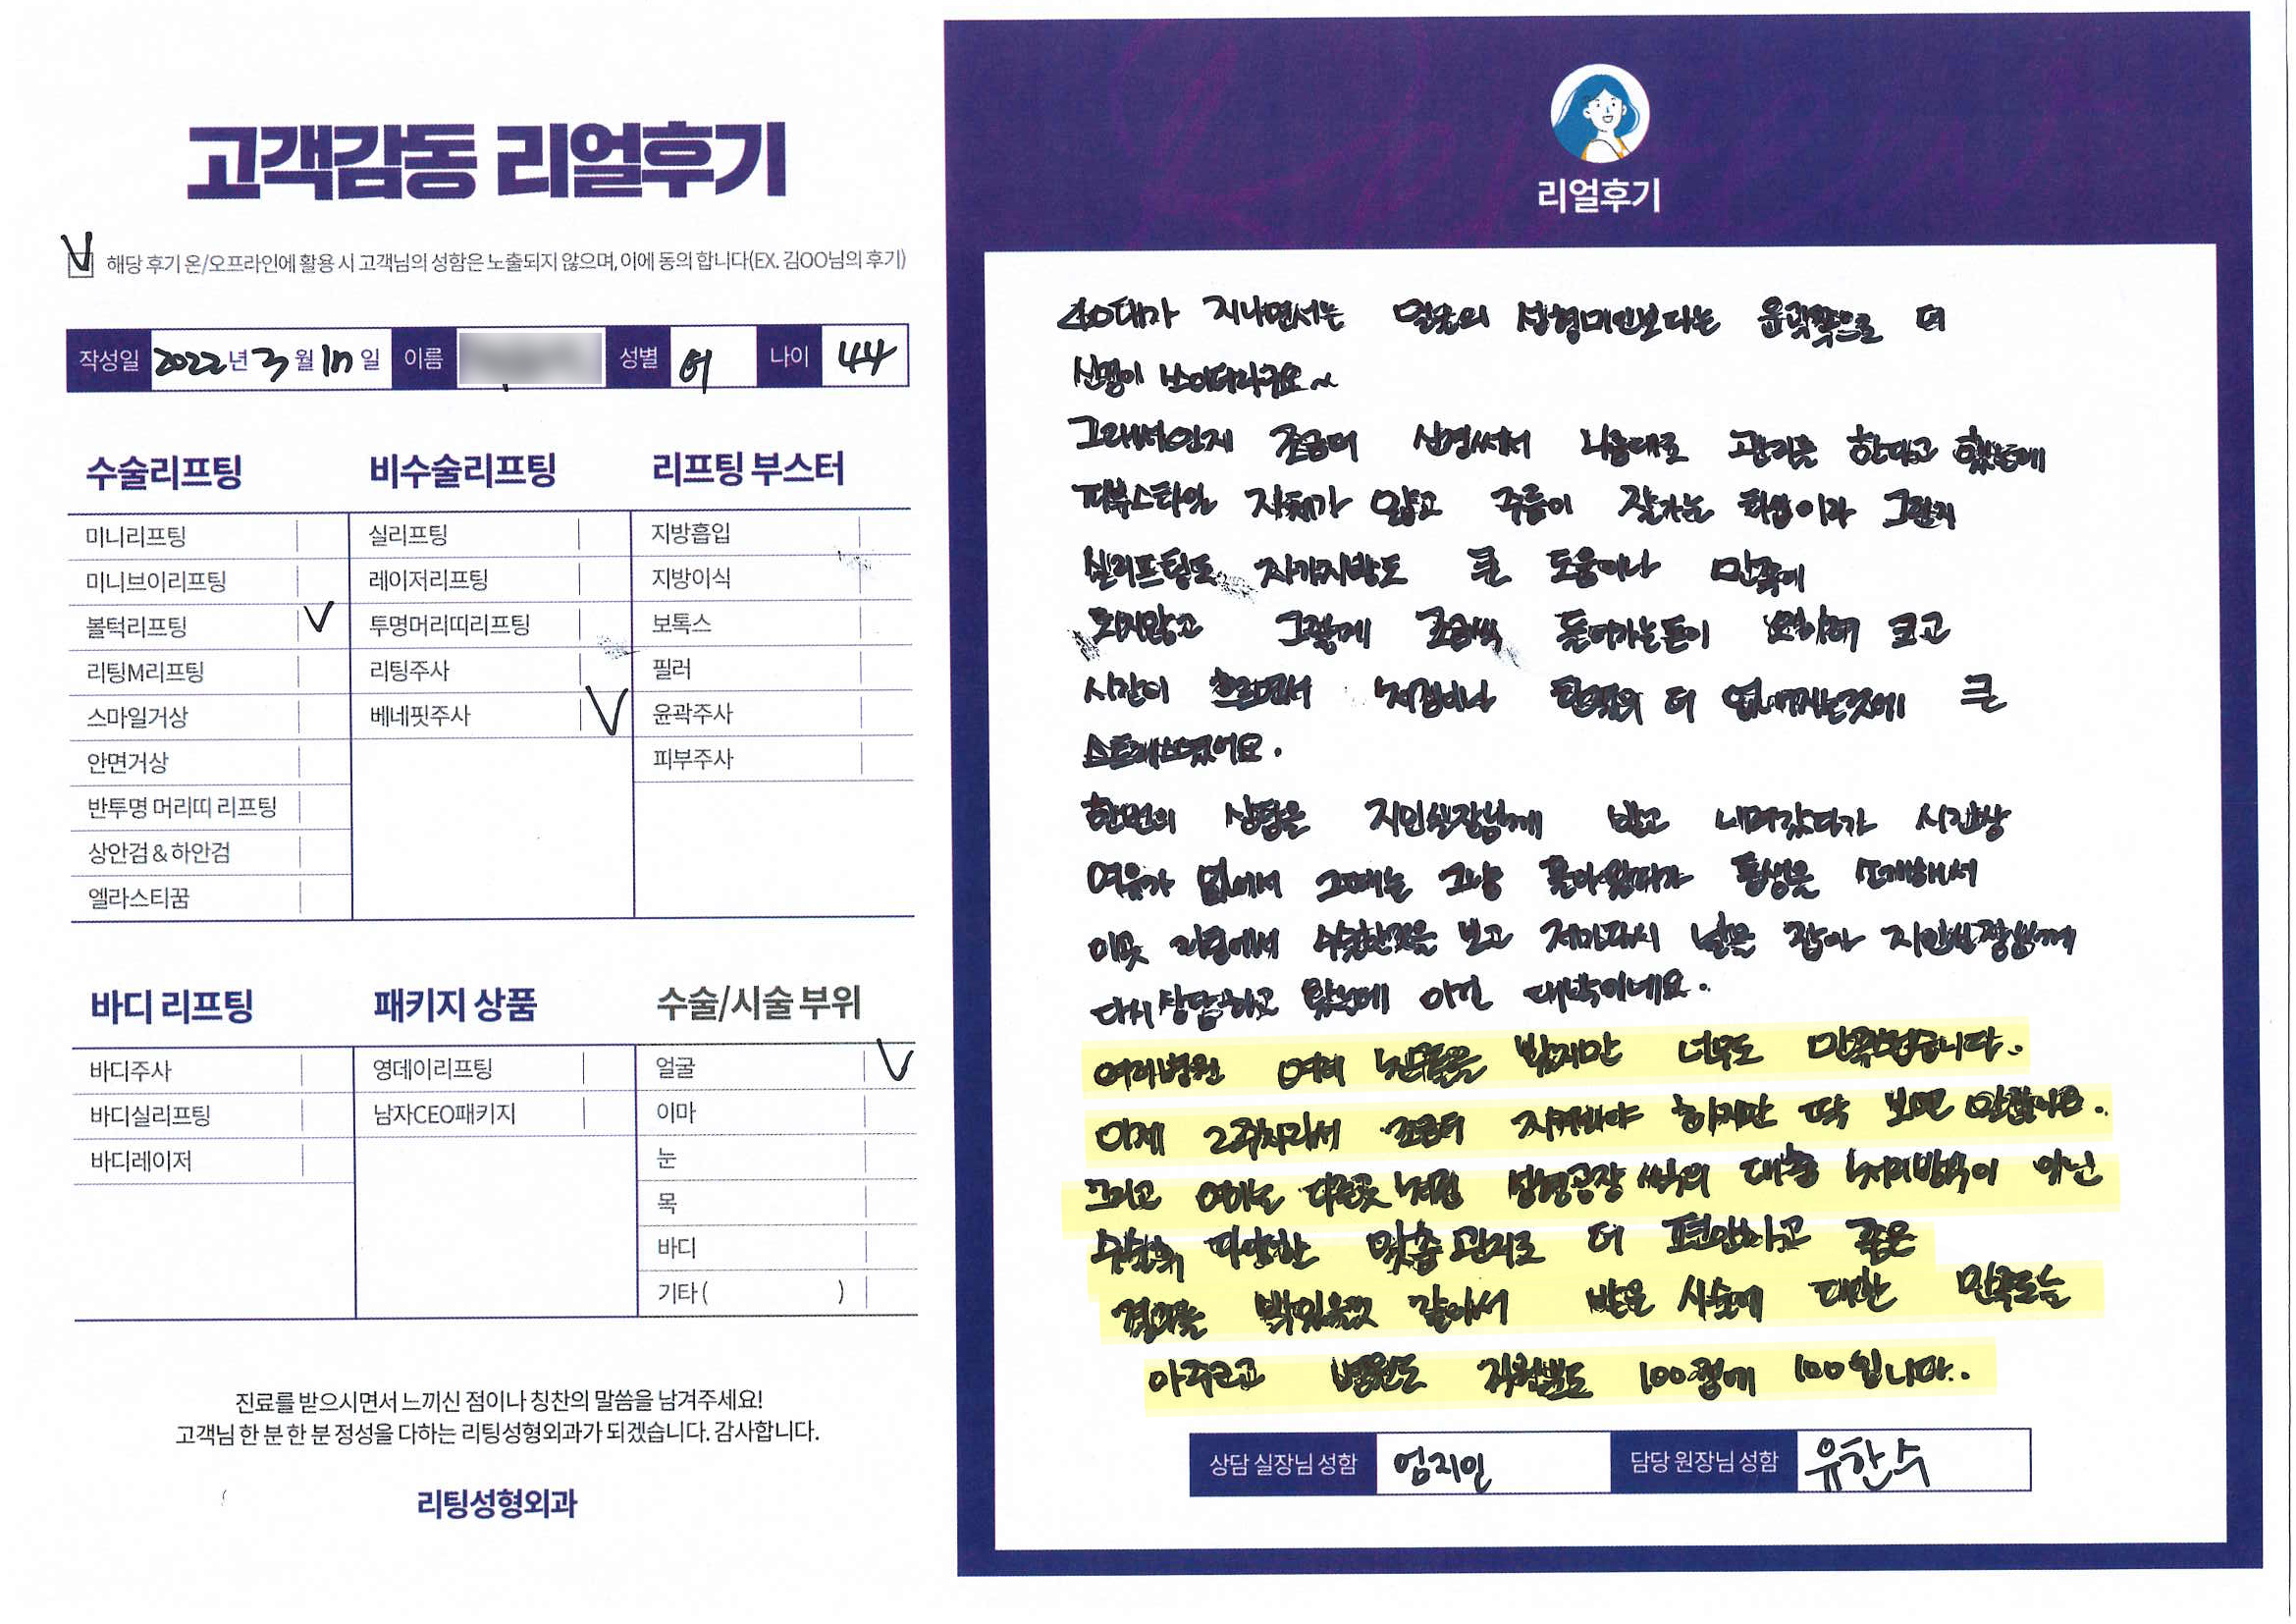 고객감동 리얼후기
해당 후기 온/오프라인에 활용 시 고객님의 성함은 노출되지 않으며, 이에 동의 합니다(EX. 김OO님의 후기)
작성일 2022년 3월 일 이름 성별 여 나이 44
수술리프팅
미니리프팅
미니브이리프팅
볼턱리프팅
리팅M리프팅
스마일거상
안면거상
반투명 머리띠 리프팅
상안검&하안검
엘라스티꿈
비수술리프팅
실리프팅
레이저리프팅
투명머리띠리프팅
리팅주사
베네핏주사
리프팅 부스터
지방흡입
지방이식
보톡스
필러
윤곽주사
피부주사
바디 리프팅
바디주사
바디실리프팅
바디레이저
패키지 상품
영데이리프팅
남자CEO패키지
수술/시술 부위
얼굴
이마
눈
목
바디
기타 ( )
진료를 받으시면서 느끼신 점이나 칭찬의 말씀을 남겨주세요!
고객님 한 분 한 분 정성을 다하는 리팅성형외과가 되겠습니다. 감사합니다.
리팅성형외과
리얼후기
40대가 지나면서는 얼굴의 성형미인보다는 윤곽쪽으로 더
신경이 쓰이더라구요~
그래서인지 조금더 신경써서 나름대로 관리를 한다고 했는데
피부스타일 자체가 얇고 주름이 잘가는 타입이라 그런지
실리프팅도 자가지방도 큰 도움이나 만족이
되지않고 그렇게 조금씩 들어가는돈이 크고
시간이 흐르면서 처짐이나 탄력의 더 없어지는것에 큰
스트레스였어요.
한번의 상담을 지인실장님께 받고 내려갔다가 시간상
여유가 없어서 그때는 그냥 돌아왔다가 동생을 소개해서
이곳 리팅에서 수술한것을 보고 저마저 날을 잡아 지인실장님께
다시 상담하고 왔는데 이건 대박이네요.
여러병원 여러 시술들을 받았지만 너무도 만족했습니다..
이제 2주차라서 조금더 지켜봐야 하지만 딱 보면 알잖아요..
그리고 여기는 다른곳처럼 성형공장 식의 대충 방식이 아닌
수술후 다양한 맞춤관리로 더 편안하고 좋은
결과를 받았을것 같아서 받은 시술에 대한 만족도는
아주크고 병원도 직원분도 100점에 100입니다..
상담 실장님 성함 엄지인 담당 원장님 성함 유한수